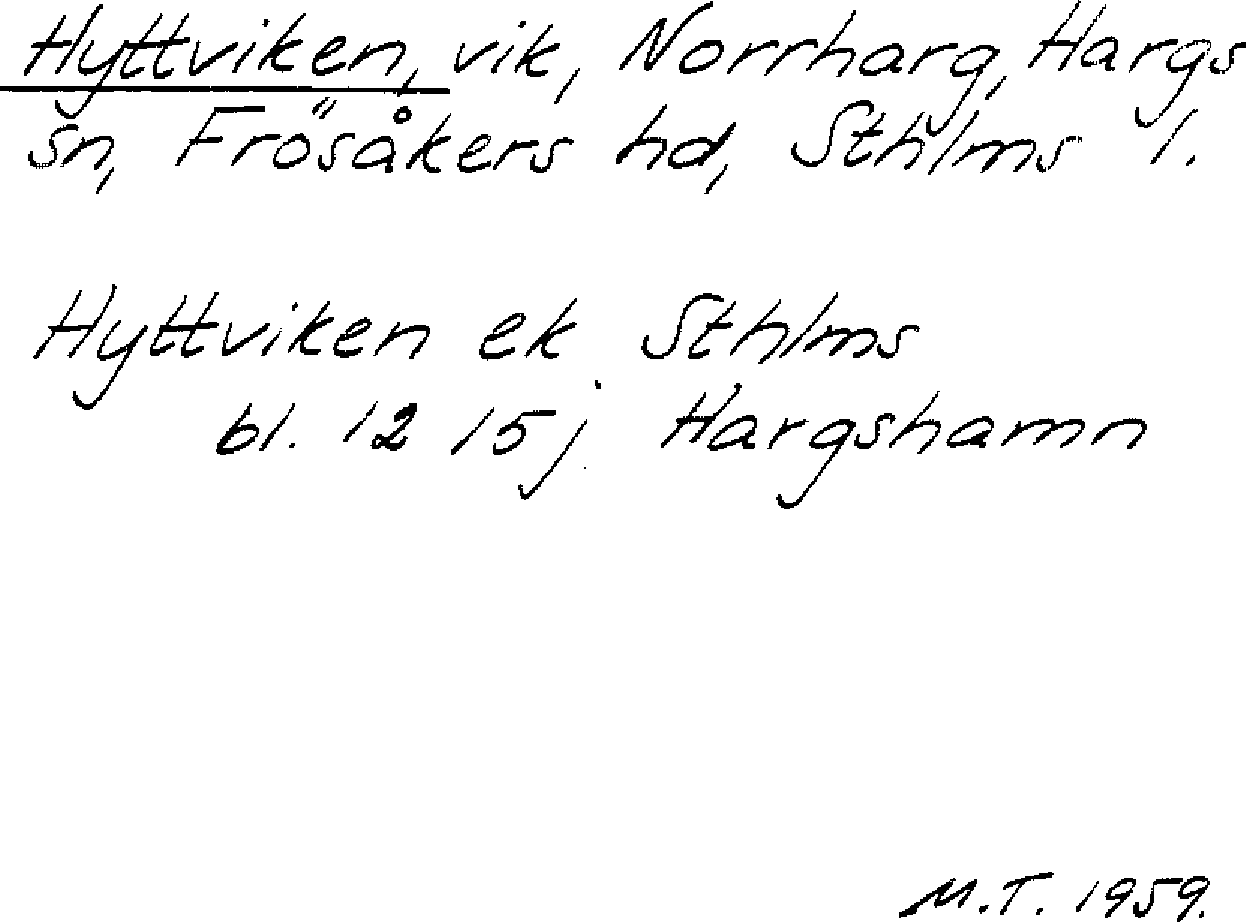 Hyttviken, vik, Norrharg, Hargs
sn, Frösåkers hd, Sthlms l.
Hyttviken ek Sthlms
bl. 12 I5j Hargshamn
M.T. 1959.